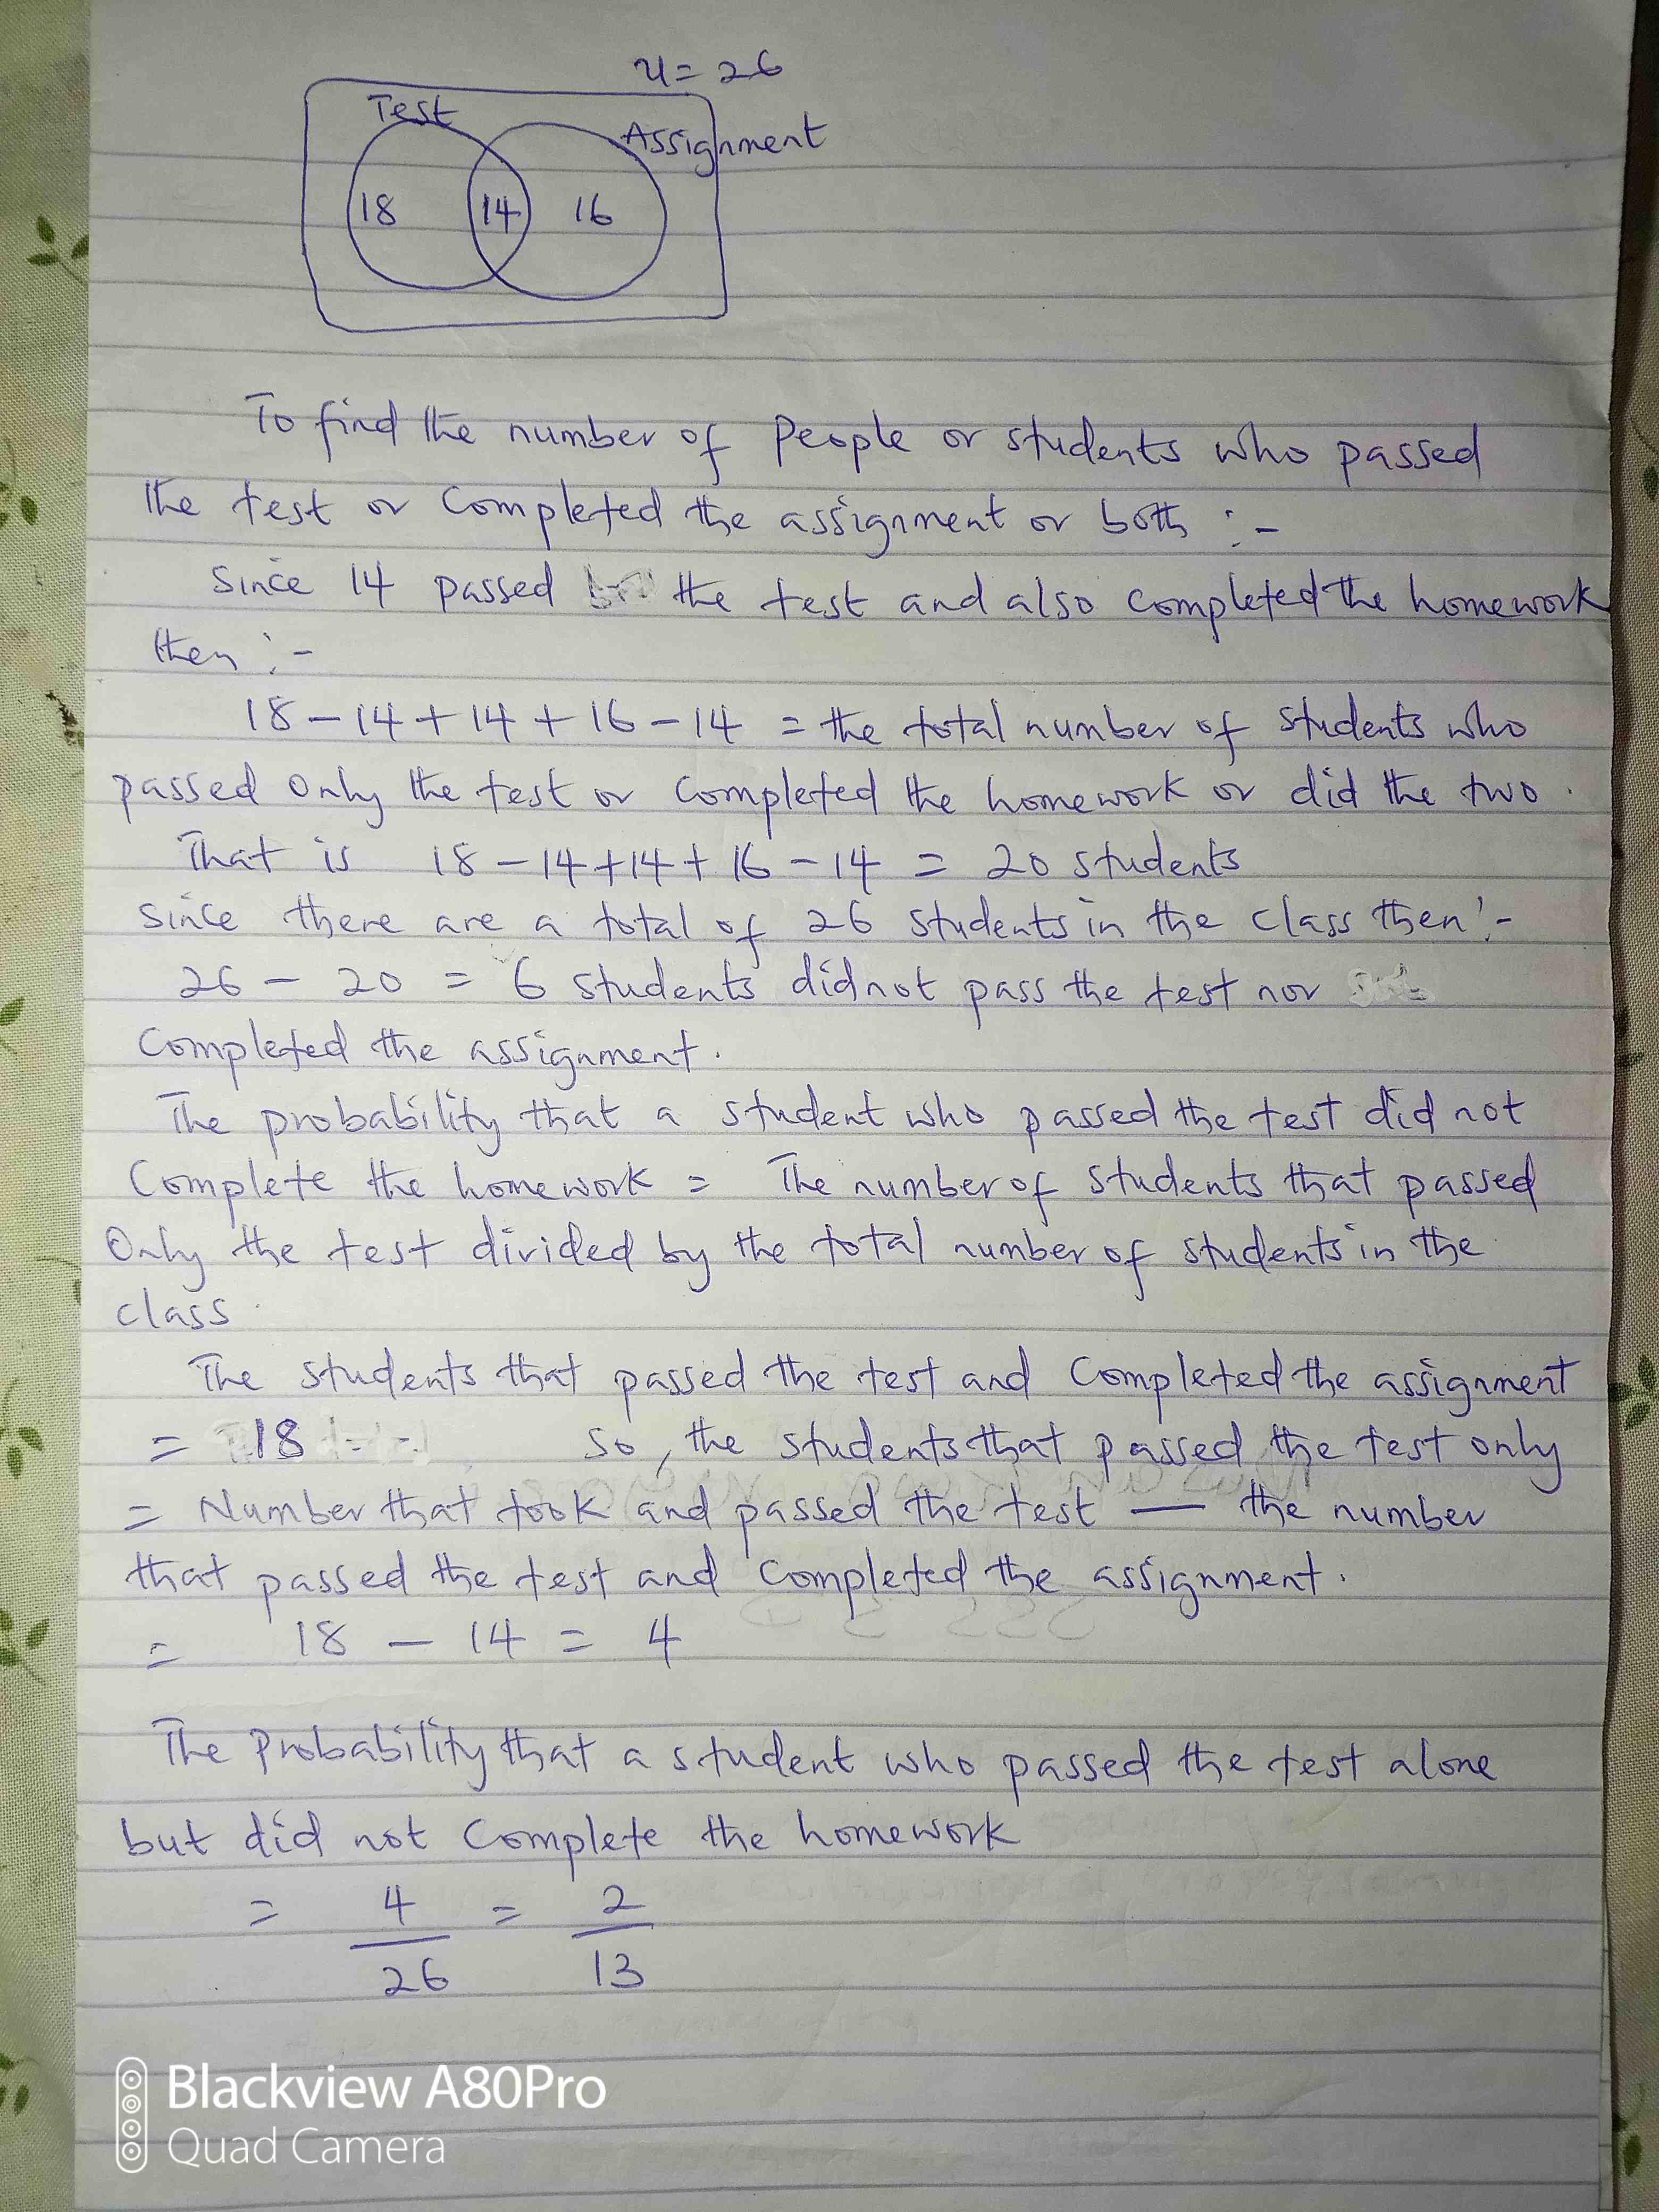 u = 26
Test
Assignment
18 14 16
To find the number of people or students who passed
the test or completed the assignment or both :-
Since 14 passed the test and also completed the homework
then :-
18 - 14 + 14 + 16 - 14 = the total number of students who
passed only the test or completed the homework or did the two.
That is 18 - 14 + 14 + 16 - 14 = 20 students
Since there are a total of 26 students in the class then :-
26 - 20 = 6 students did not pass the test nor
completed the assignment.
The probability that a student who passed the test did not
complete the homework = The number of students that passed
Only the test divided by the total number of students in the
class.
The students that passed the test and completed the assignment
= 18 So, the students that passed the test only
= Number that took and passed the test — the number
that passed the test and completed the assignment.
= 18 - 14 = 4
The Probability that a student who passed the test alone
but did not complete the homework
= 4/26 = 2/13
Blackview A80Pro
Quad Camera